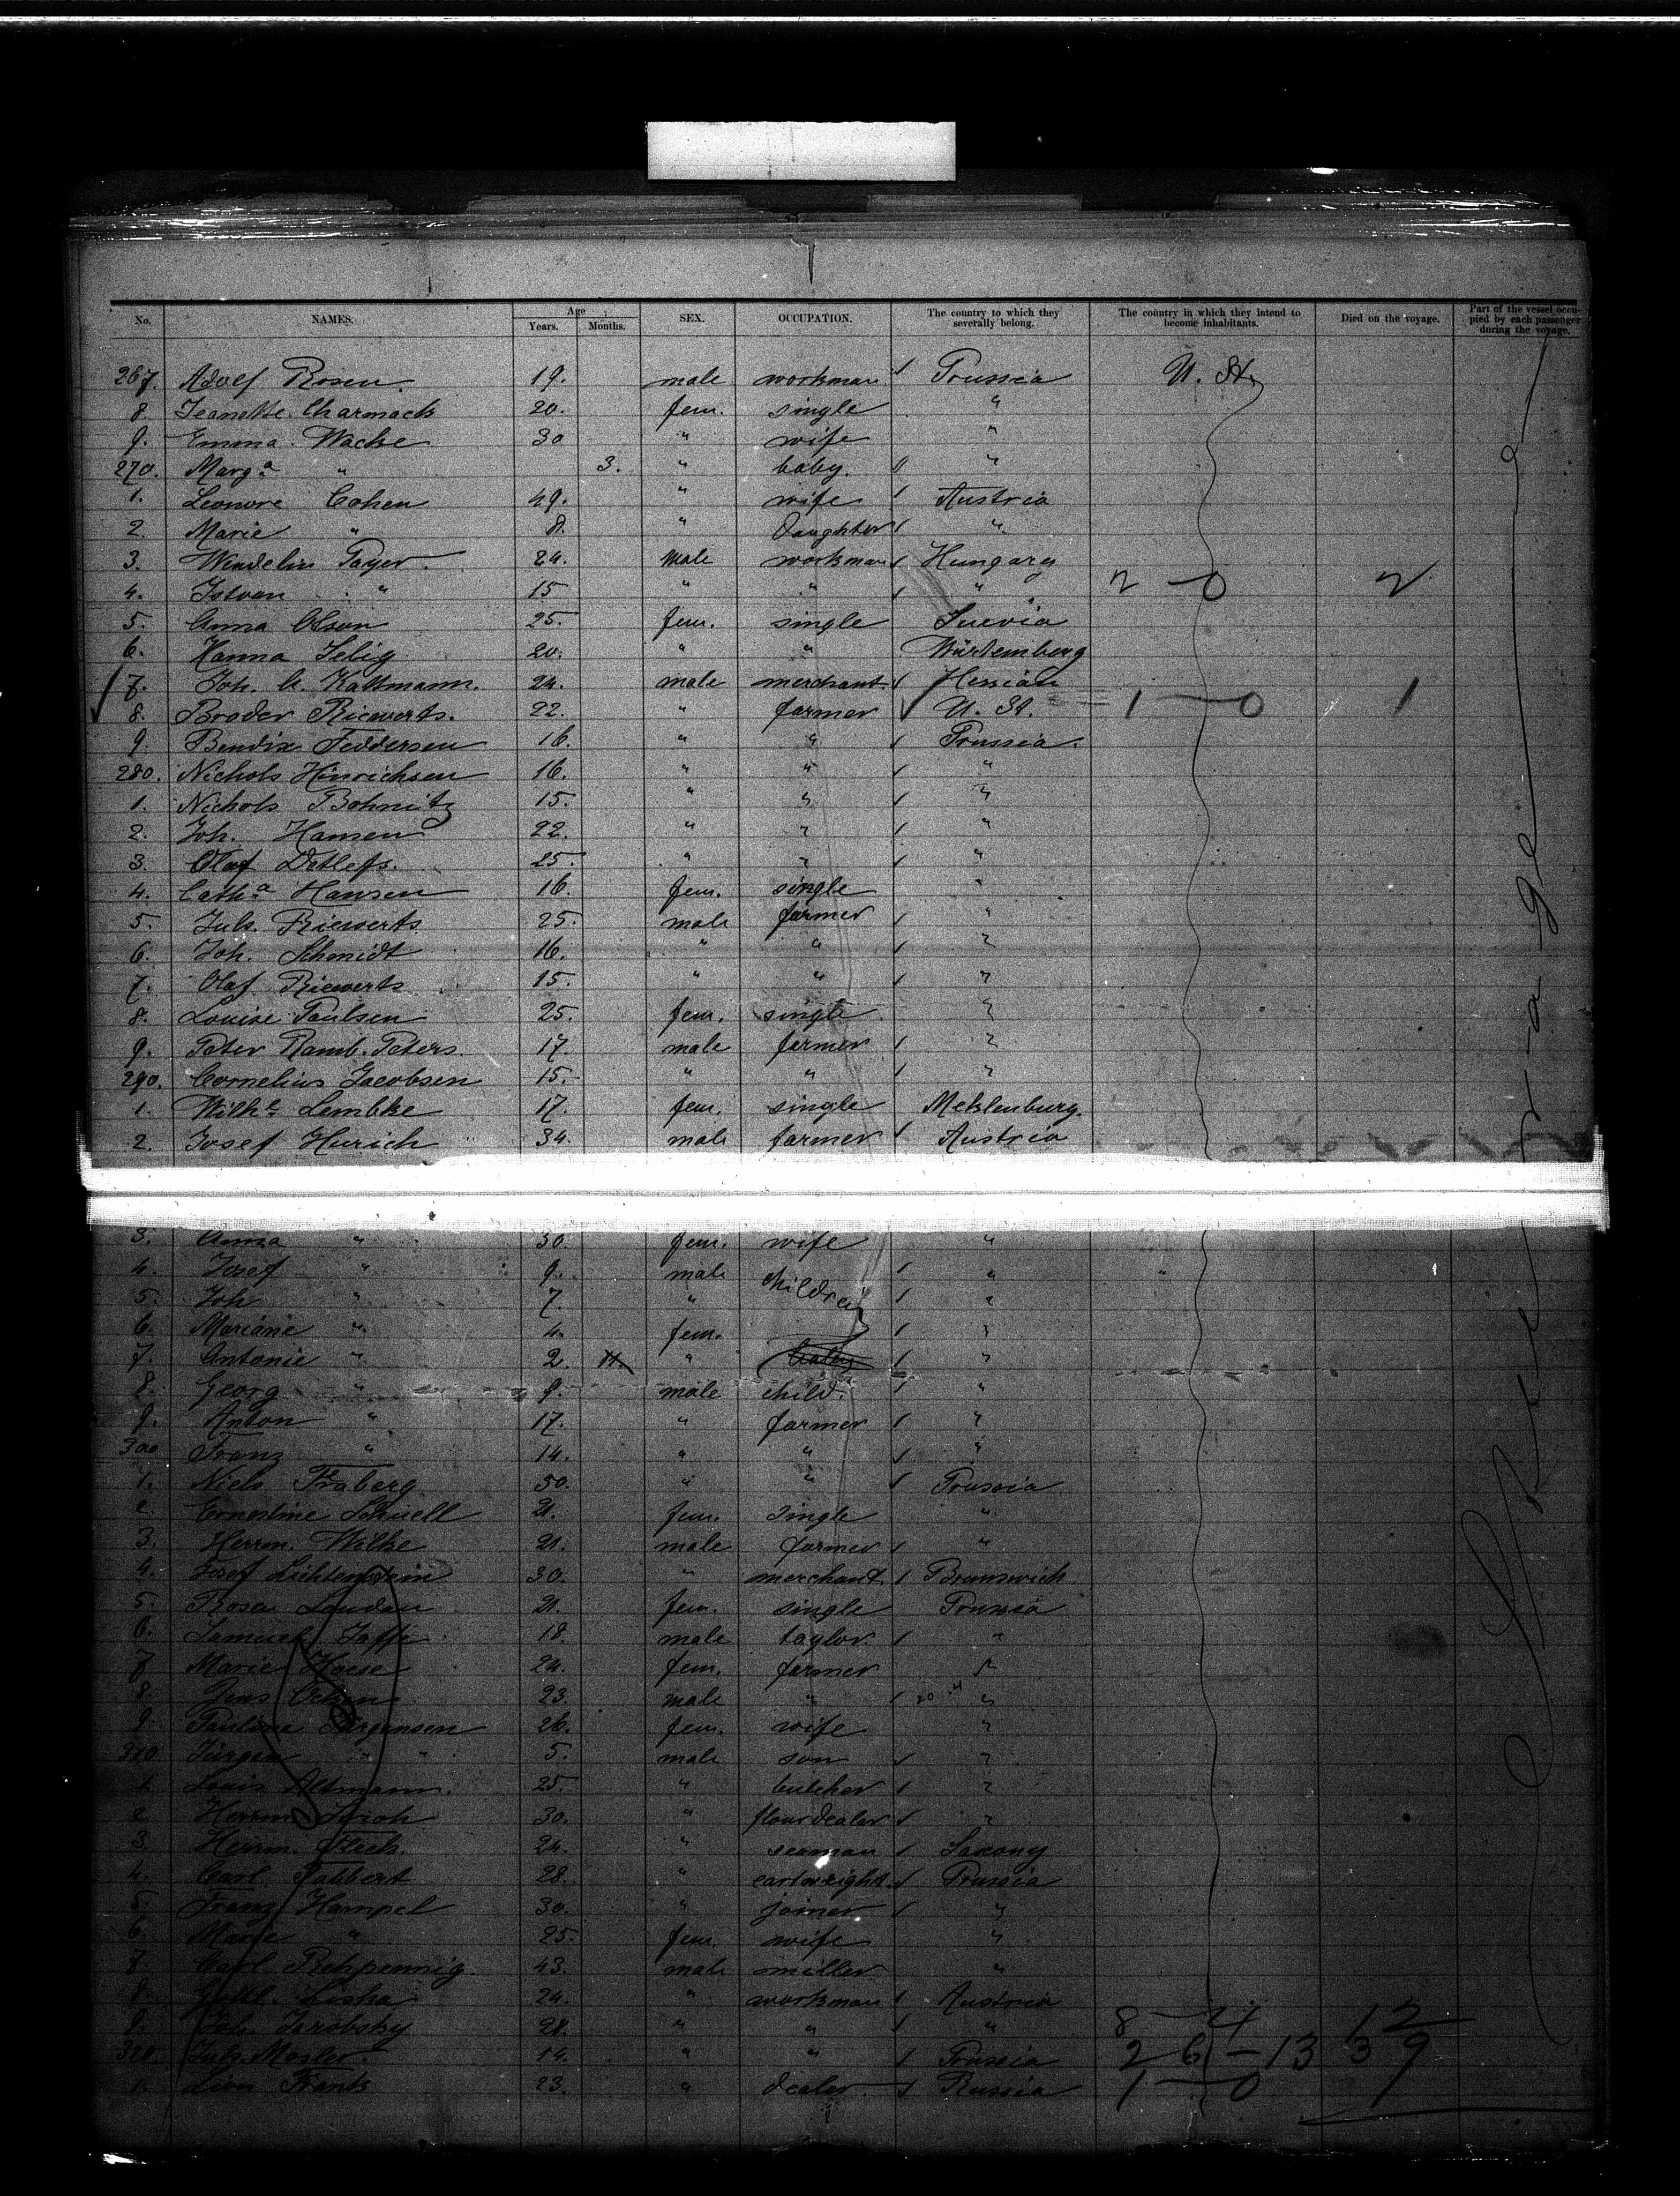 No. NAMES. Age Years. Months. SEX. OCCUPATION. The country to which they severally belong. The country in which they intend to become inhabitants. Died on the voyage. Part of the vessel occupied by each passenger during the voyage.
267. Adolf Rosen 19. male workman Prussia U. St.
8. Jeanette Charmack 20. fem. single "
9. Emma Wacke 30 " wife "
270. Marga " 3. " baby. "
1. Leonore Cohen 49. " wife Austria
2. Marie " 8. " Daughter "
3. Wendelin Payer. 24. male workman Hungary
4. Istvan " 15 " " " 2 - 0 2
5. Anna Olson 25. fem. single Suevia
6. Hanna Selig 20. " " Würtemberg
7. Joh. A. Kattmann. 24. male merchant. Hessian
8. Broder Riewerts. 22. " farmer U. St. 1 - 0 1
9. Bendix Feddersen 16. " " Prussia.
280. Nichols Hinrichsen 16. " " "
1. Nichols Bohnitz 15. " " "
2. Joh. Hansen 22. " " "
3. Olaf Detlefs. 25. " " "
4. Catha Hansen 16. fem. single "
5. Juls. Riewerts 25. male farmer "
6. Joh. Schmidt 16. " " "
7. Olaf Riewerts 15. " " "
8. Louise Paulsen 25. fem. single "
9. Peter Ramb. Peters. 17. male farmer "
290. Cornelius Jacobsen 15. " " "
1. Wilhe Lembke 17. fem. single Meklenburg.
2. Josef Hurich 34. male farmer Austria
3. Anna " 30. fem. wife "
4. Josef " 9. male children "
5. Joh " 7. " "
6. Mariane " 4. fem. "
7. Antonie " 2. 11. " baby "
8. Georg " 9. male child. "
9. Anton " 17. " farmer "
300 Franz " 14. " " "
1. Niels Fraberg 50. " " Prussia
2. Ernestine Schnell 21. fem. single "
3. Herrm. Wilke 21. male farmer "
4. Josef Lichtenstein 30. " merchant. Brunswick
5. Rosa Landau 21. fem. single Prussia
6. Samuel Jaffe 18. male taylor "
7. Marie Haese 24. fem. farmer "
8. Jens Ocksen 23. male " "
9. Pauline Jürgensen 26. fem. wife "
310 Jürgen " 5. male son "
1. Louis Altmann. 25. " butcher "
2. Herrm. 30. " flourdealer "
3. Herrm. Fleck. 24. " seaman Saxony
4. Carl Fabbert 28. " cartwright. Prussia
5. Franz Hampel 30. " joiner "
6. Marie " 25. fem. wife "
7. Carl Rehpennig. 43. male miller "
8. Gottl. Liska 24. " workman Austria
9. Joh. Jarobsky 28. " " " 8 - 4 12
320. Juls. Mosler. 14. " " Prussia 26 - 13 39
1. Lion Frank 23. " dealer Russia 1 - 0 1
Steerage